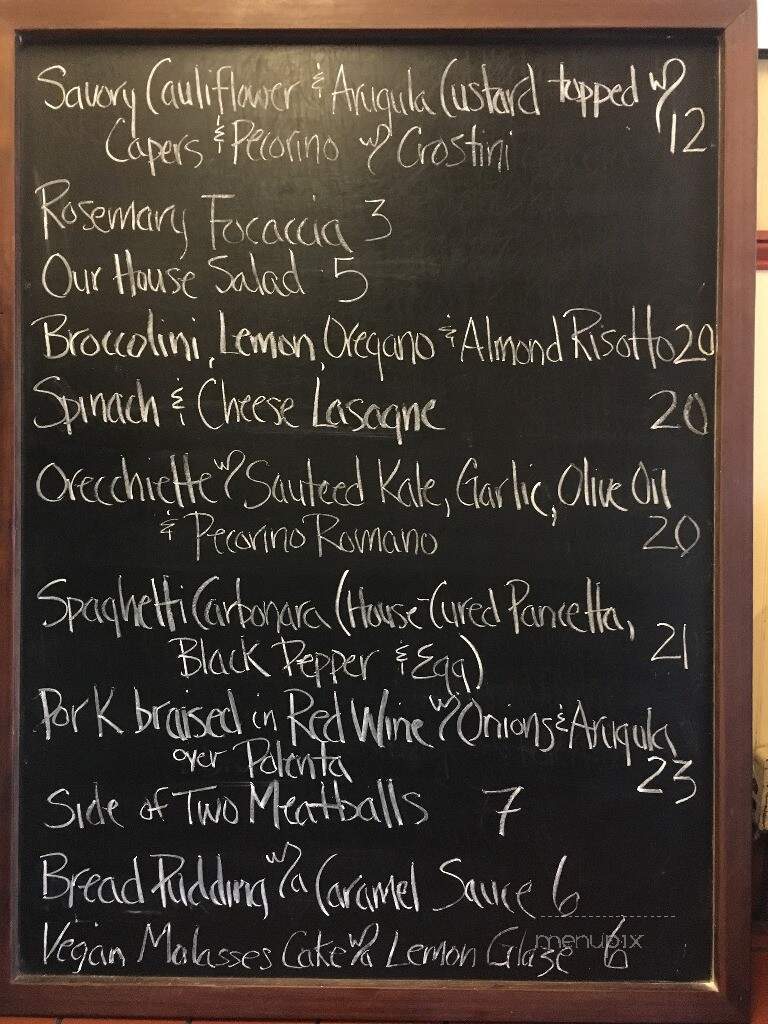 Savory Cauliflower & Arugula Custard topped w/
Capers & Pecorino w/ Crostini 12
Rosemary Focaccia 3
Our House Salad 5
Broccolini, Lemon, Oregano & Almond Risotto 20
Spinach & Cheese Lasagne 20
Orecchiette w/ Sauteed Kale, Garlic, Olive Oil
& Pecorino Romano 20
Spaghetti Carbonara (House-Cured Pancetta,
Black Pepper & Egg) 21
Pork braised in Red Wine w/ Onions & Arugula
over Polenta 23
Side of Two Meatballs 7
Bread Pudding w/a Caramel Sauce 6
Vegan Molasses Cake w/a Lemon Glaze 6
menupix